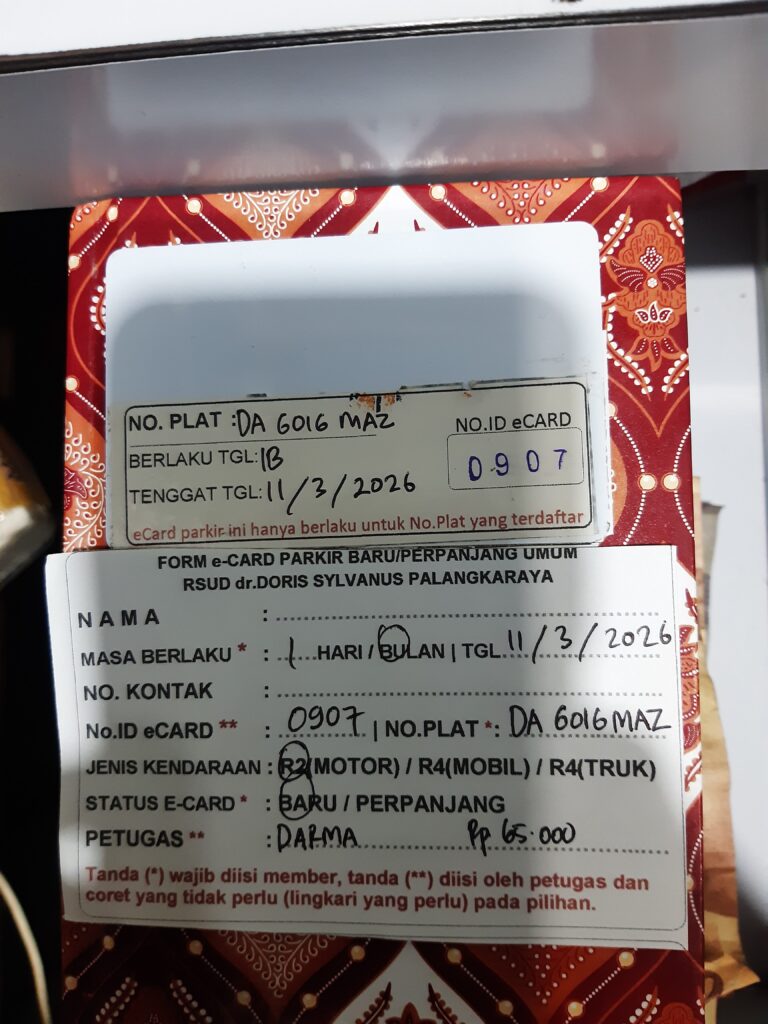 NO. PLAT : DA 6016 MAZ
NO.ID eCARD
BERLAKU TGL: 1B
0907
TENGGAT TGL: 11/3/2026
eCard parkir ini hanya berlaku untuk No.Plat yang terdaftar
FORM e-CARD PARKIR BARU/PERPANJANG UMUM
RSUD dr.DORIS SYLVANUS PALANGKARAYA
NAMA :
MASA BERLAKU * : 1 HARI / BULAN | TGL 11/3/2026
NO. KONTAK :
No.ID eCARD ** : 0907 | NO.PLAT *: DA 6016 MAZ
JENIS KENDARAAN : R2(MOTOR) / R4(MOBIL) / R4(TRUK)
STATUS E-CARD * : BARU / PERPANJANG
PETUGAS ** : DARMA Rp 65.000
Tanda (*) wajib diisi member, tanda (**) diisi oleh petugas dan
coret yang tidak perlu (lingkari yang perlu) pada pilihan.